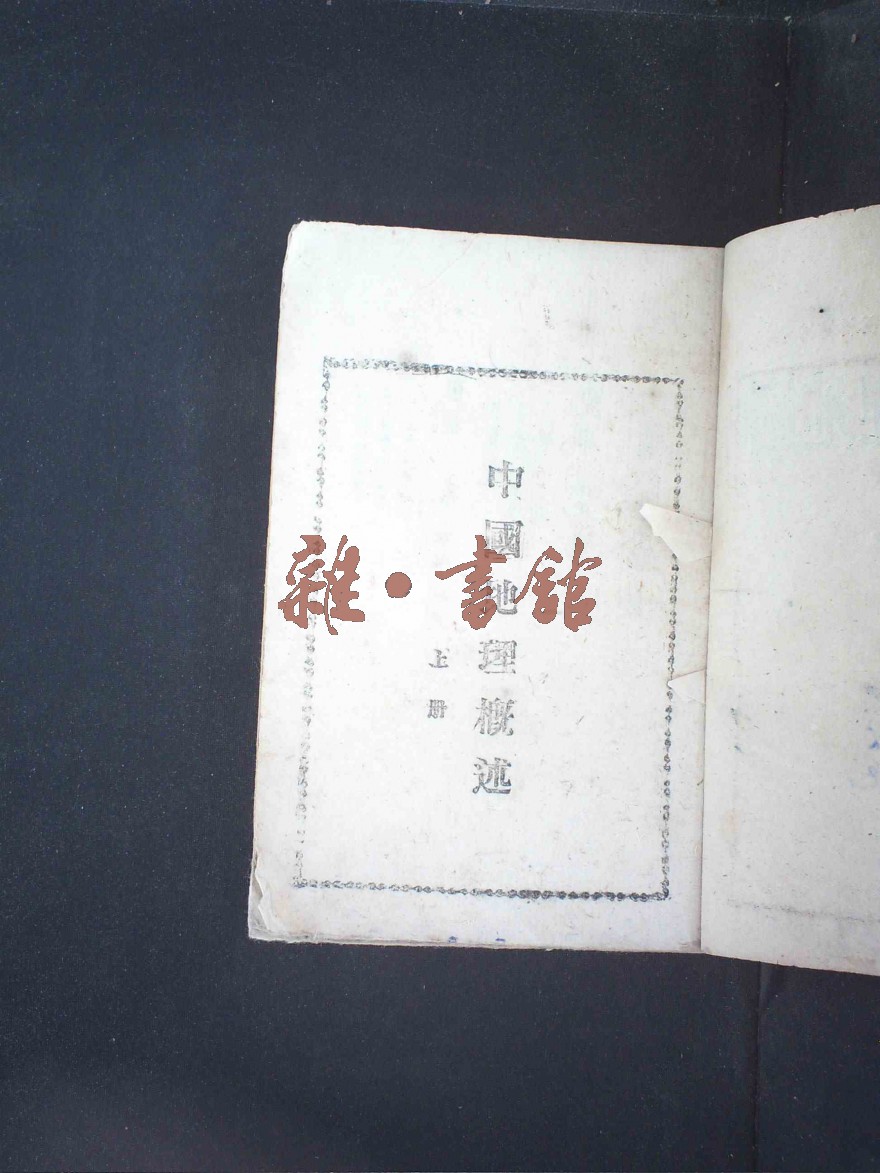 中國地理概述
上册
雜·書館